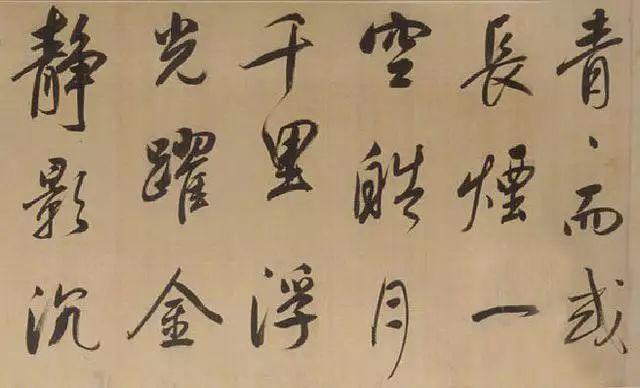 青〻而或
長煙一
空皓月
千里浮
光躍金
静影沉